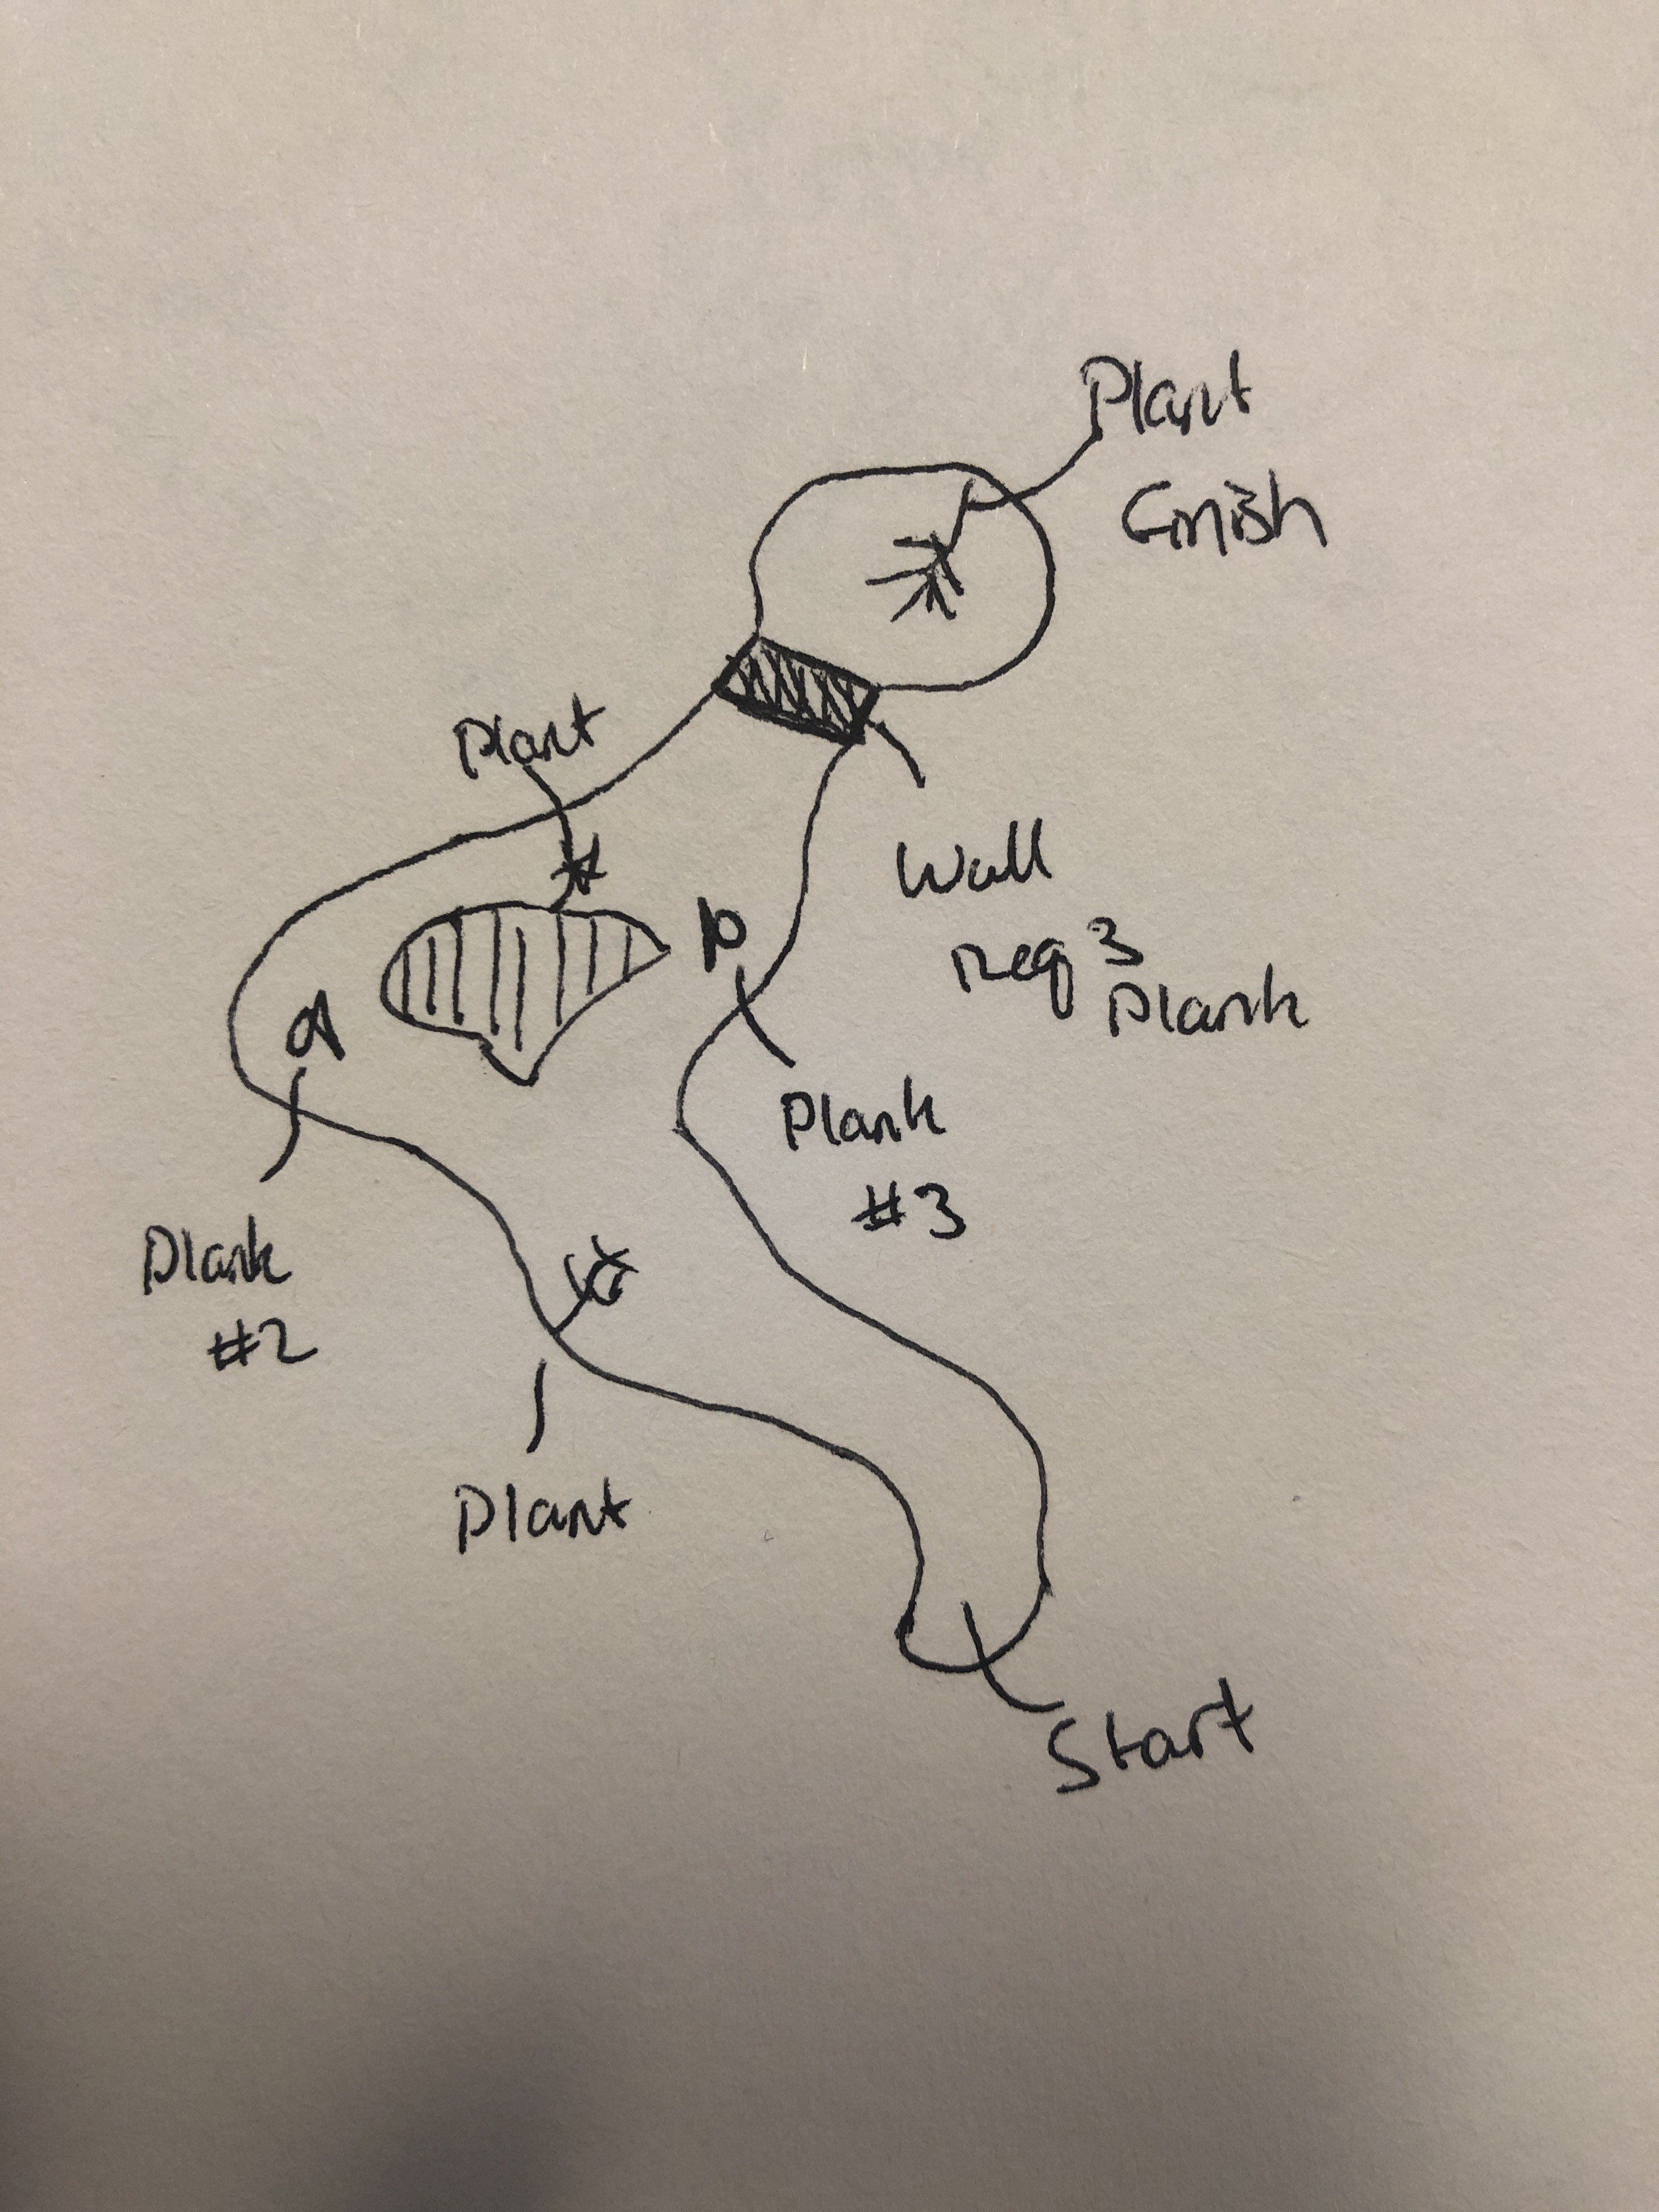 Plant
Finish
Plant
Wall
Req 3
Plank
Plank
#3
Plank
#2
Plant
Start